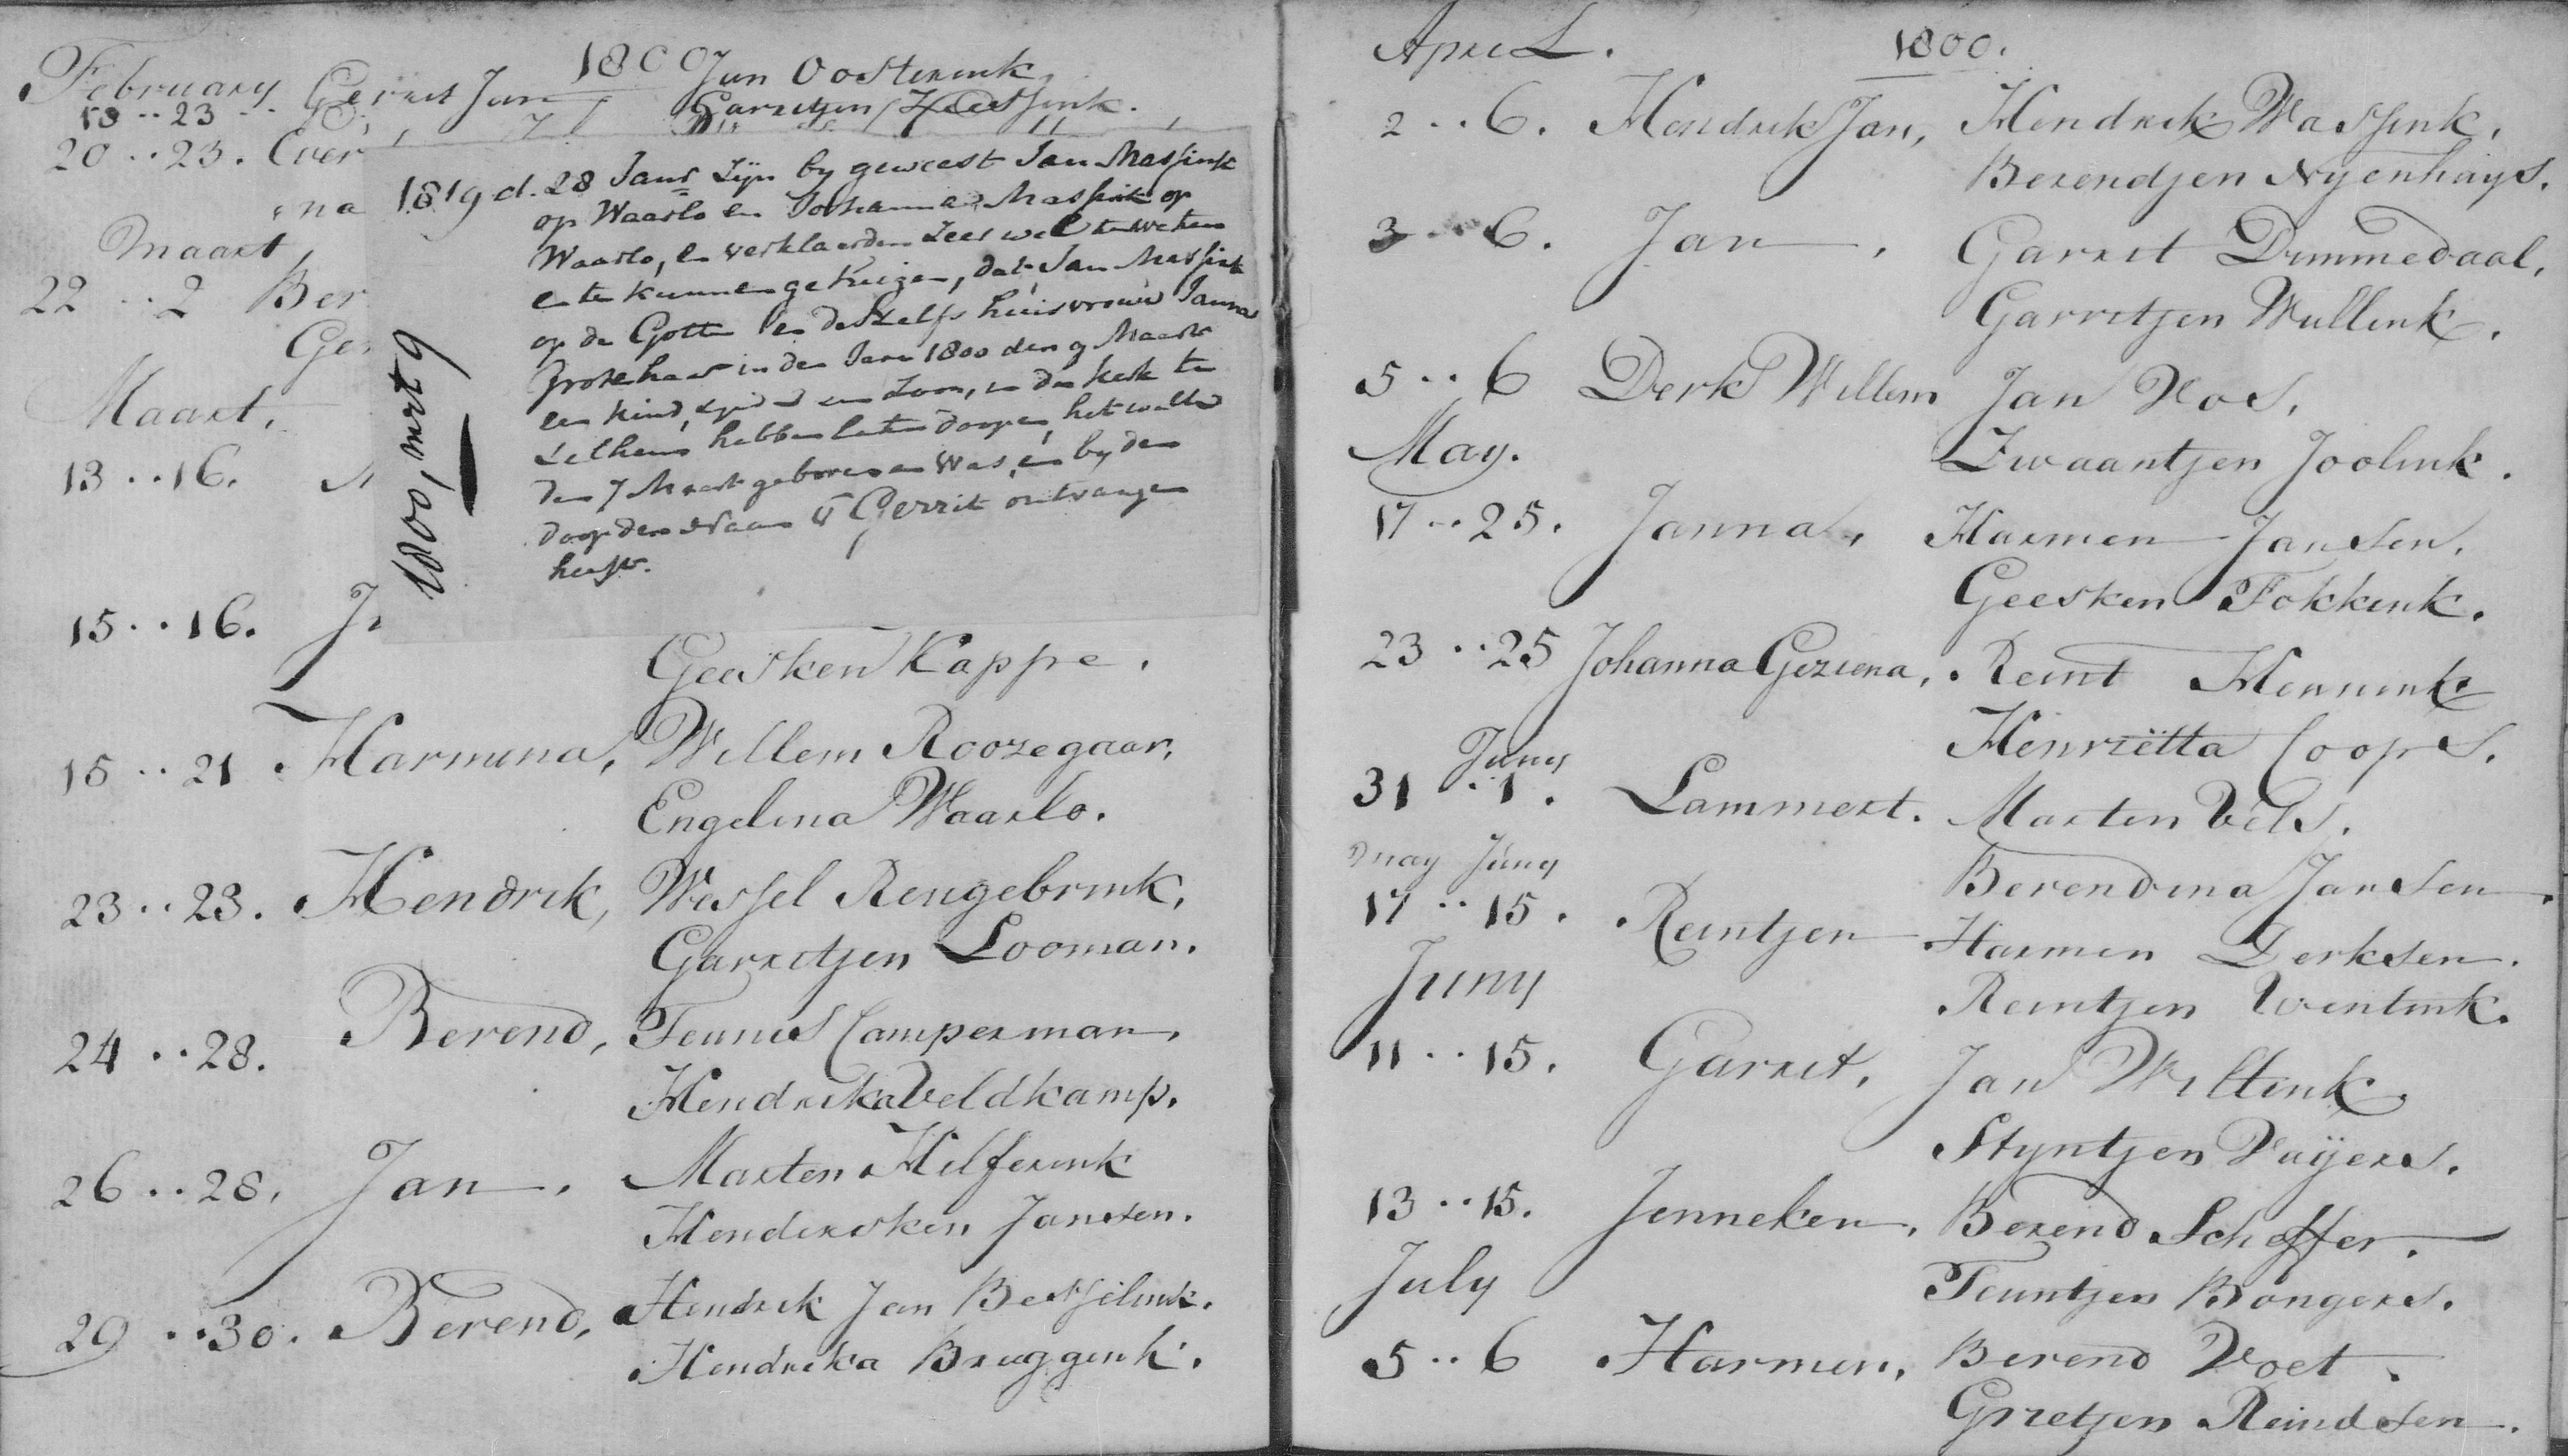 1800
February Gerrit Jan Jan Oosterink
19..23 Garritjen
20..23. Ever
na
maart
22..2 Ber
Ge
Maart.
13..16.
15..16. J
1819 d. 28 Janr Zijn by geweest Jan Massink
op Waarlo en Johanna Massink op
Waarlo, en verklaarden Zeer wel te weten
en te kunnen getuigen, dat Jan Massink
op de Gotte en deszelfs huisvrouw Janna
Grotehaar in den Jare 1800 den 9 Maart
een kind, zynde een Zoon, in de kerk te
Zelhem hebben laten doopen, het welk
den 7 Maart geboren was, en by den
doop den Naam Gerrit ontvangen
heeft.
1800, mrt 9
Geesken Kappe.
15..21 Harmina, Willem Roozegaar,
Engelina Waarlo.
23..23. Hendrik, Wessel Rengebrink,
Garritjen Looman.
24..28. Berend, Teunis Camperman,
Hendrika Veldkamp.
26..28. Jan. Marten Hilferink
Hendersken Jansen.
29..30. Berend, Hendrik Jan Besselink.
Hendrika Bruggink.
April. 1800.
2..6. Hendrik Jan, Hendrik Wassink,
Berendjen Nyenhuys.
3..6. Jan, Garrit Dimmedaal,
Garritjen Wullink.
5..6 Derk Willem Jan Vos,
May. Zwaantjen Joolink.
17..25. Janna, Harmen Jansen,
Geesken Fokkink.
23..25 Johanna Geziena, Reint Mennink
Henriëtta Coops.
Juny
31..1. Lammert. Marten Vels.
may Juny Berendina Jansen.
17..15. Reintjen Harmen Derksen.
Juny Reintjen Wentink.
11..15. Garrit, Jan Wiltink
Styntjen
13..15. Jenneken, Berend Scheffer.
July Teuntjen Bongers.
5..6 Harmen, Berend Voet.
Grietjen Reindsen.